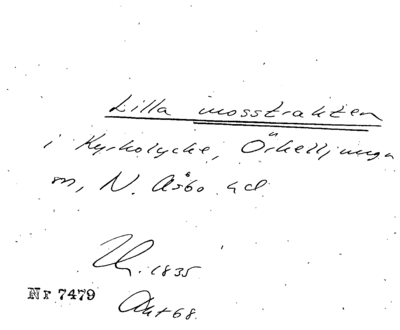 Lilla mosstrakten
i Kyrkolycke, Örkelljunga
sn, N. Åsbo hd
Th. 1835
Nr 7479
Akt 68.